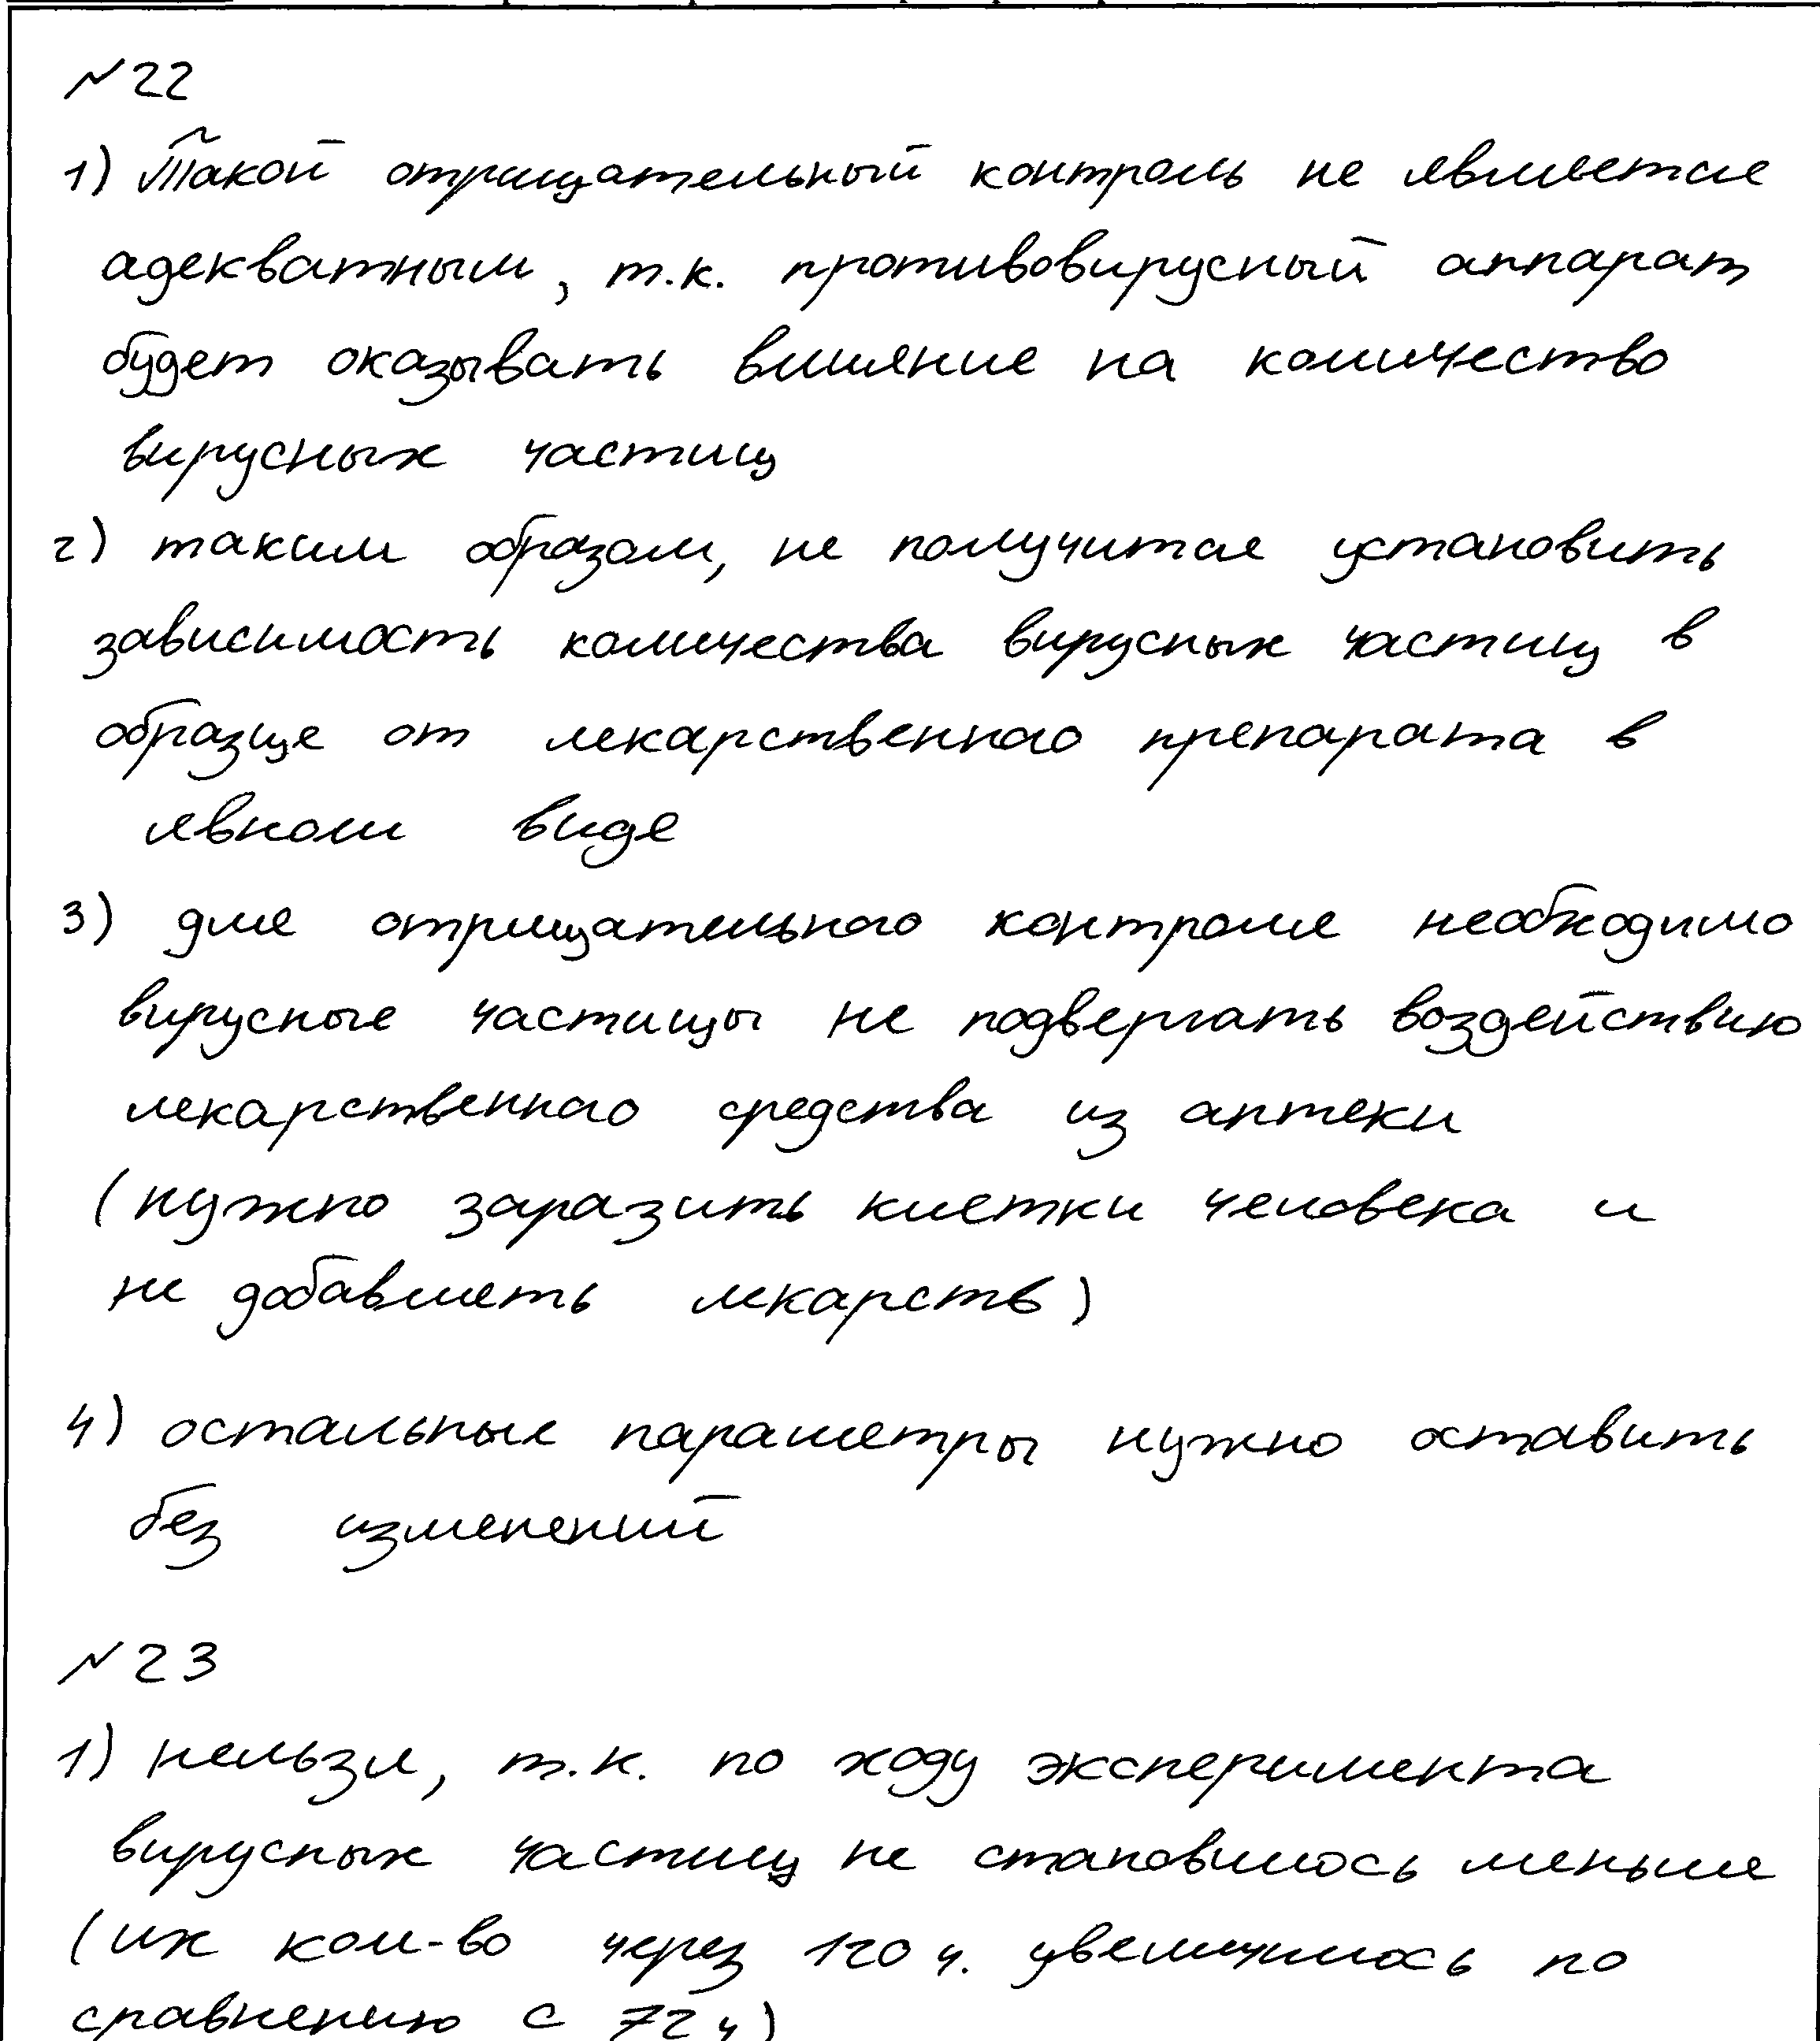 №22
1) Такой отрицательный контроль не является
адекватным, т.к. противовирусный аппарат
будет оказывать влияние на количество
вирусных частиц
2) таким образом, не получится установить
зависимость количества вирусных частиц в
образце от лекарственного препарата в
явном виде
3) для отрицательного контроля необходимо
вирусные частицы не подвергать воздействию
лекарственного средства из аптеки
(нужно заразить клетки человека и
не добавлять лекарств)
4) остальные параметры нужно оставить
без изменений
№23
1) нельзя, т.к. по ходу эксперимента
вирусных частиц не становилось меньше
(их кол-во через 120 ч. увеличилось по
сравнению с 72 ч)